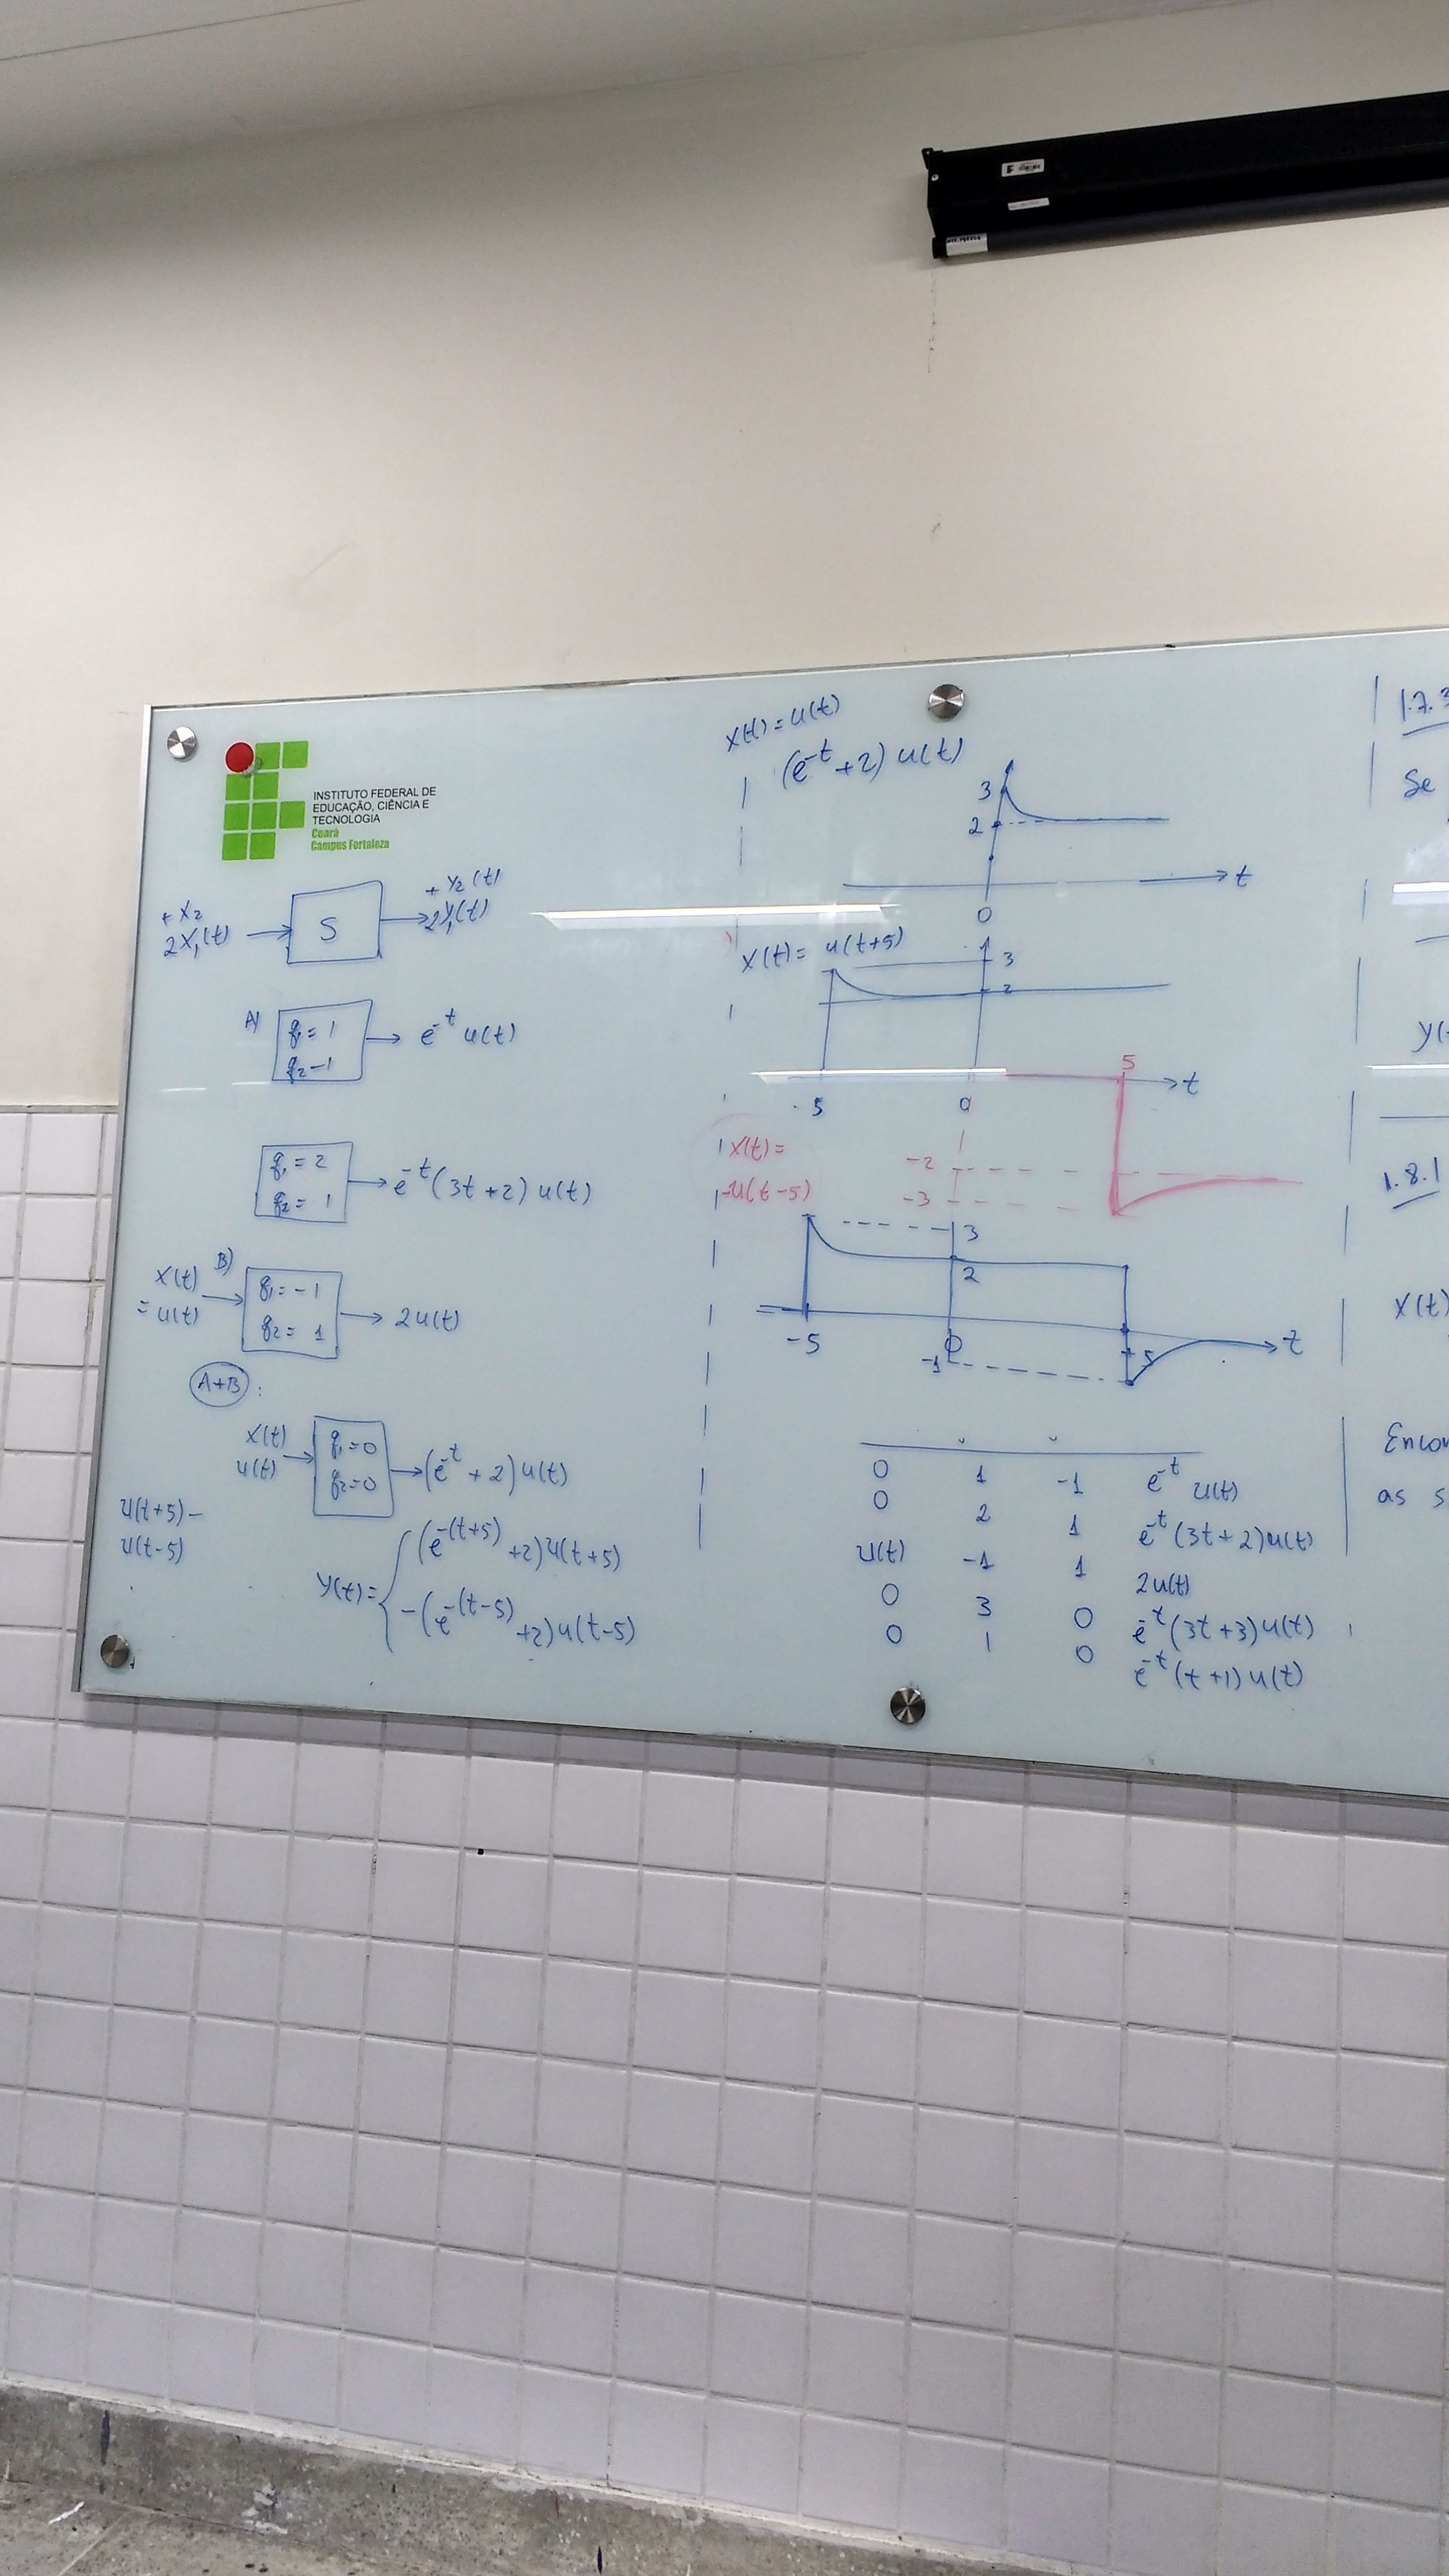 INSTITUTO FEDERAL DE
EDUCAÇÃO, CIÊNCIA E
TECNOLOGIA
Ceará
Campus Fortaleza
+ x2
2x1(t)
S
+ y2(t)
2y1(t)
A)
q1 = 1
q2 -1
e^-t u(t)
q1 = 2
q2 = 1
e^-t(3t+2) u(t)
B)
x(t)
= u(t)
q1 = -1
q2 = 1
2u(t)
A+B :
x(t)
u(t)
q1=0
q2=0
(e^-t + 2) u(t)
u(t+5) -
u(t-5)
y(t)= { (e^-(t+5) +2) u(t+5)
-(e^-(t-5) +2) u(t-5)
x(t) = u(t)
(e^-t + 2) u(t)
3
2
t
0
x(t) = u(t+5)
3
2
5
t
-5
0
x(t) =
-u(t-5)
-2
-3
3
2
-5
0
5
t
-1
0 1 -1 e^-t u(t)
0 2 1 e^-t (3t+2)u(t)
u(t) -1 1 2u(t)
0 3 0 e^-t (3t+3)u(t)
0 1 0 e^-t (t+1) u(t)
1.7.3
Se
y(t
1.8.1
x(t)
Encon
as s